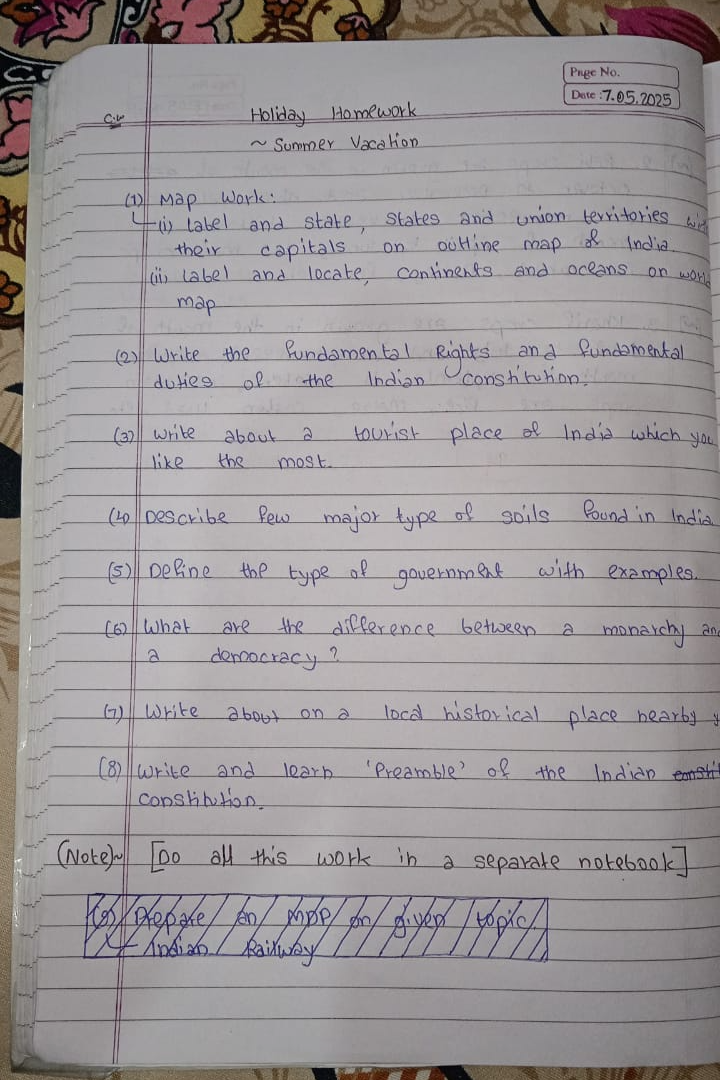 Page No.
Date : 7.05.2025
C.W
Holiday Homework
~ Summer Vacation
(1) Map Work:
(i) Label and state, states and union territories
their capitals on outline map of India
(ii) Label and locate, continents and oceans on world
map
(2) Write the fundamental Rights and fundamental
duties of the Indian constitution.
(3) Write about a tourist place of India which you
like the most.
(4) Describe few major type of soils found in India
(5) Define the type of government with examples.
(6) What are the difference between a monarchy and
a democracy?
(7) Write about on a local historical place nearby
(8) Write and learn 'Preamble' of the Indian consti
constitution.
(Note)~ [Do all this work in a separate notebook]
(9) Prepare an on given topic.
Indian Railway